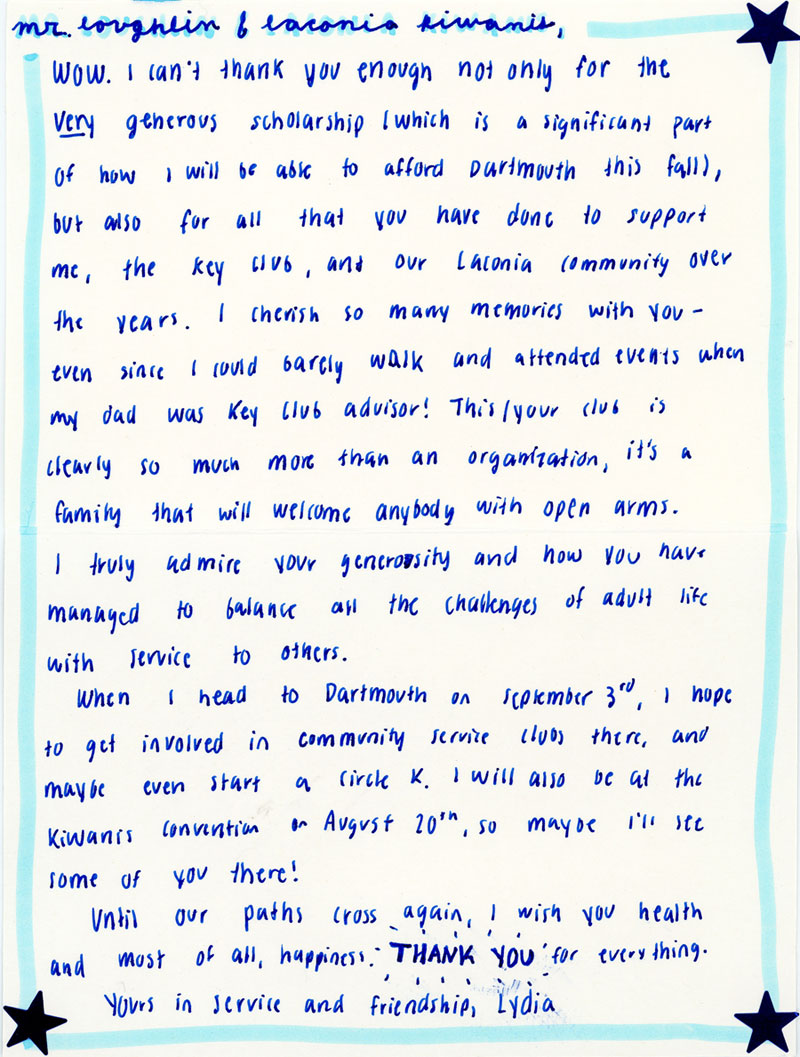 mr. loughlin & laconia kiwanis,
WOW. I can't thank you enough not only for the
very generous scholarship (which is a significant part
of how I will be able to afford Dartmouth this fall),
but also for all that you have done to support
me, the Key Club, and our Laconia community over
the years. I cherish so many memories with you -
even since I could barely walk and attended events when
my dad was Key Club advisor! This/your club is
clearly so much more than an organization, it's a
family that will welcome anybody with open arms.
I truly admire your generosity and how you have
managed to balance all the challenges of adult life
with service to others.
When I head to Dartmouth on september 3rd, I hope
to get involved in community service clubs there, and
maybe even start a Circle K. I will also be at the
Kiwanis Convention on August 20th, so maybe I'll see
some of you there!
Until our paths cross again, I wish you health
and most of all, happiness. THANK YOU for everything.
Yours in service and friendship, Lydia